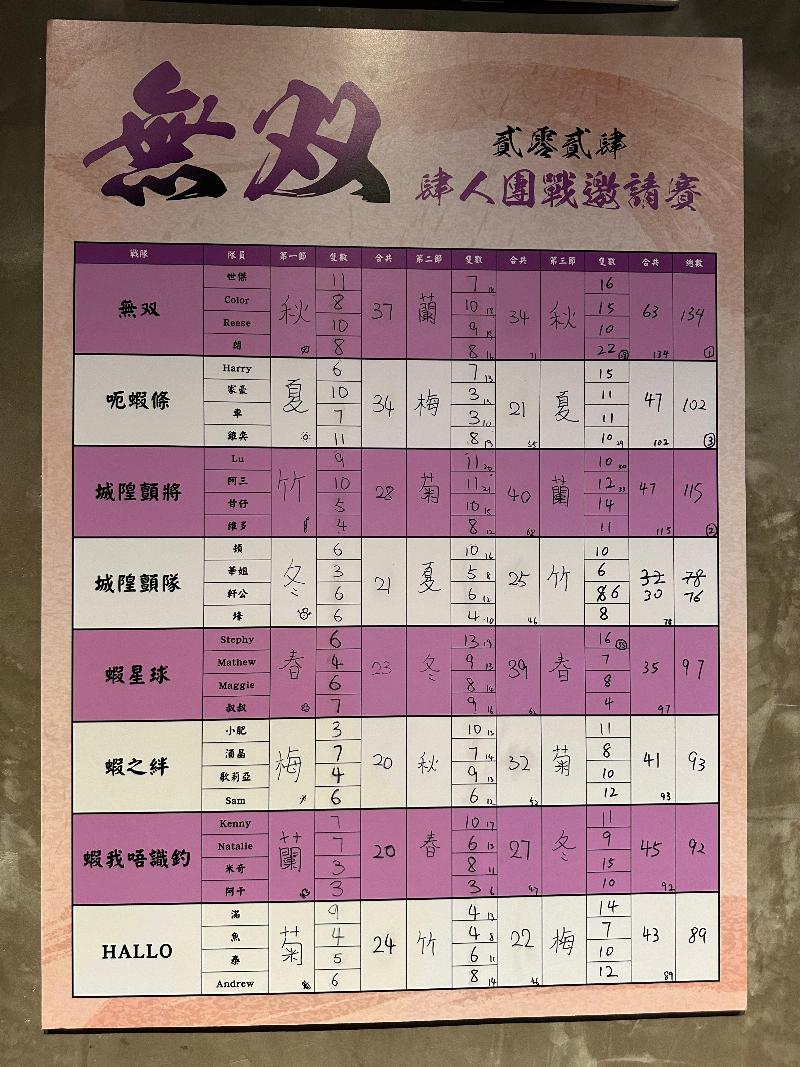 無双
貳零貳肆
肆人團戰邀請賽
戰隊 隊員 第一節 隻數 合共 第二節 隻數 合共 第三節 隻數 合共 總數
無双 秋 37 蘭 34 71 秋 63 134 134 ①
世傑 11 7 18 16
Color 8 10 18 15
Reese 10 9 19 10
朗 8 8 16 22
呃蝦條 夏 34 梅 21 55 夏 47 102 102 ③
Harry 6 7 13 15
家豪 10 3 13 11
車 7 3 10 11
雞矣 11 8 19 10 29
城隍顫將 竹 28 菊 40 68 蘭 47 115 115 ②
Lu 9 11 20 10 30
阿三 10 11 21 12 33
甘仔 5 10 15 14
維多 4 8 12 11
城隍顫隊 冬 21 夏 25 46 竹 32 30 78 78 76
6 10 16 10
華姐 3 5 8 6
軒公 6 6 12 8 6
6 4 10 8
蝦星球 春 23 冬 39 62 春 35 97 97
Stephy 6 13 19 16
Mathew 4 9 13 7
Maggie 6 8 14 8
叔叔 7 9 16 4
蝦之絆 梅 20 秋 32 52 菊 41 93 93
小肥 3 10 13 11
酒晶 7 7 14 8
歌莉亞 4 9 13 10
Sam 6 6 12 12
蝦我唔識釣 蘭 20 春 27 47 冬 45 92 92
Kenny 7 10 17 11
Natalie 7 6 13 9
米奇 3 8 11 15
阿干 3 3 6 10
HALLO 菊 24 竹 22 46 梅 43 89 89
滿 9 4 13 14
魚 4 4 8 7
泰 5 6 11 10
Andrew 6 8 14 12